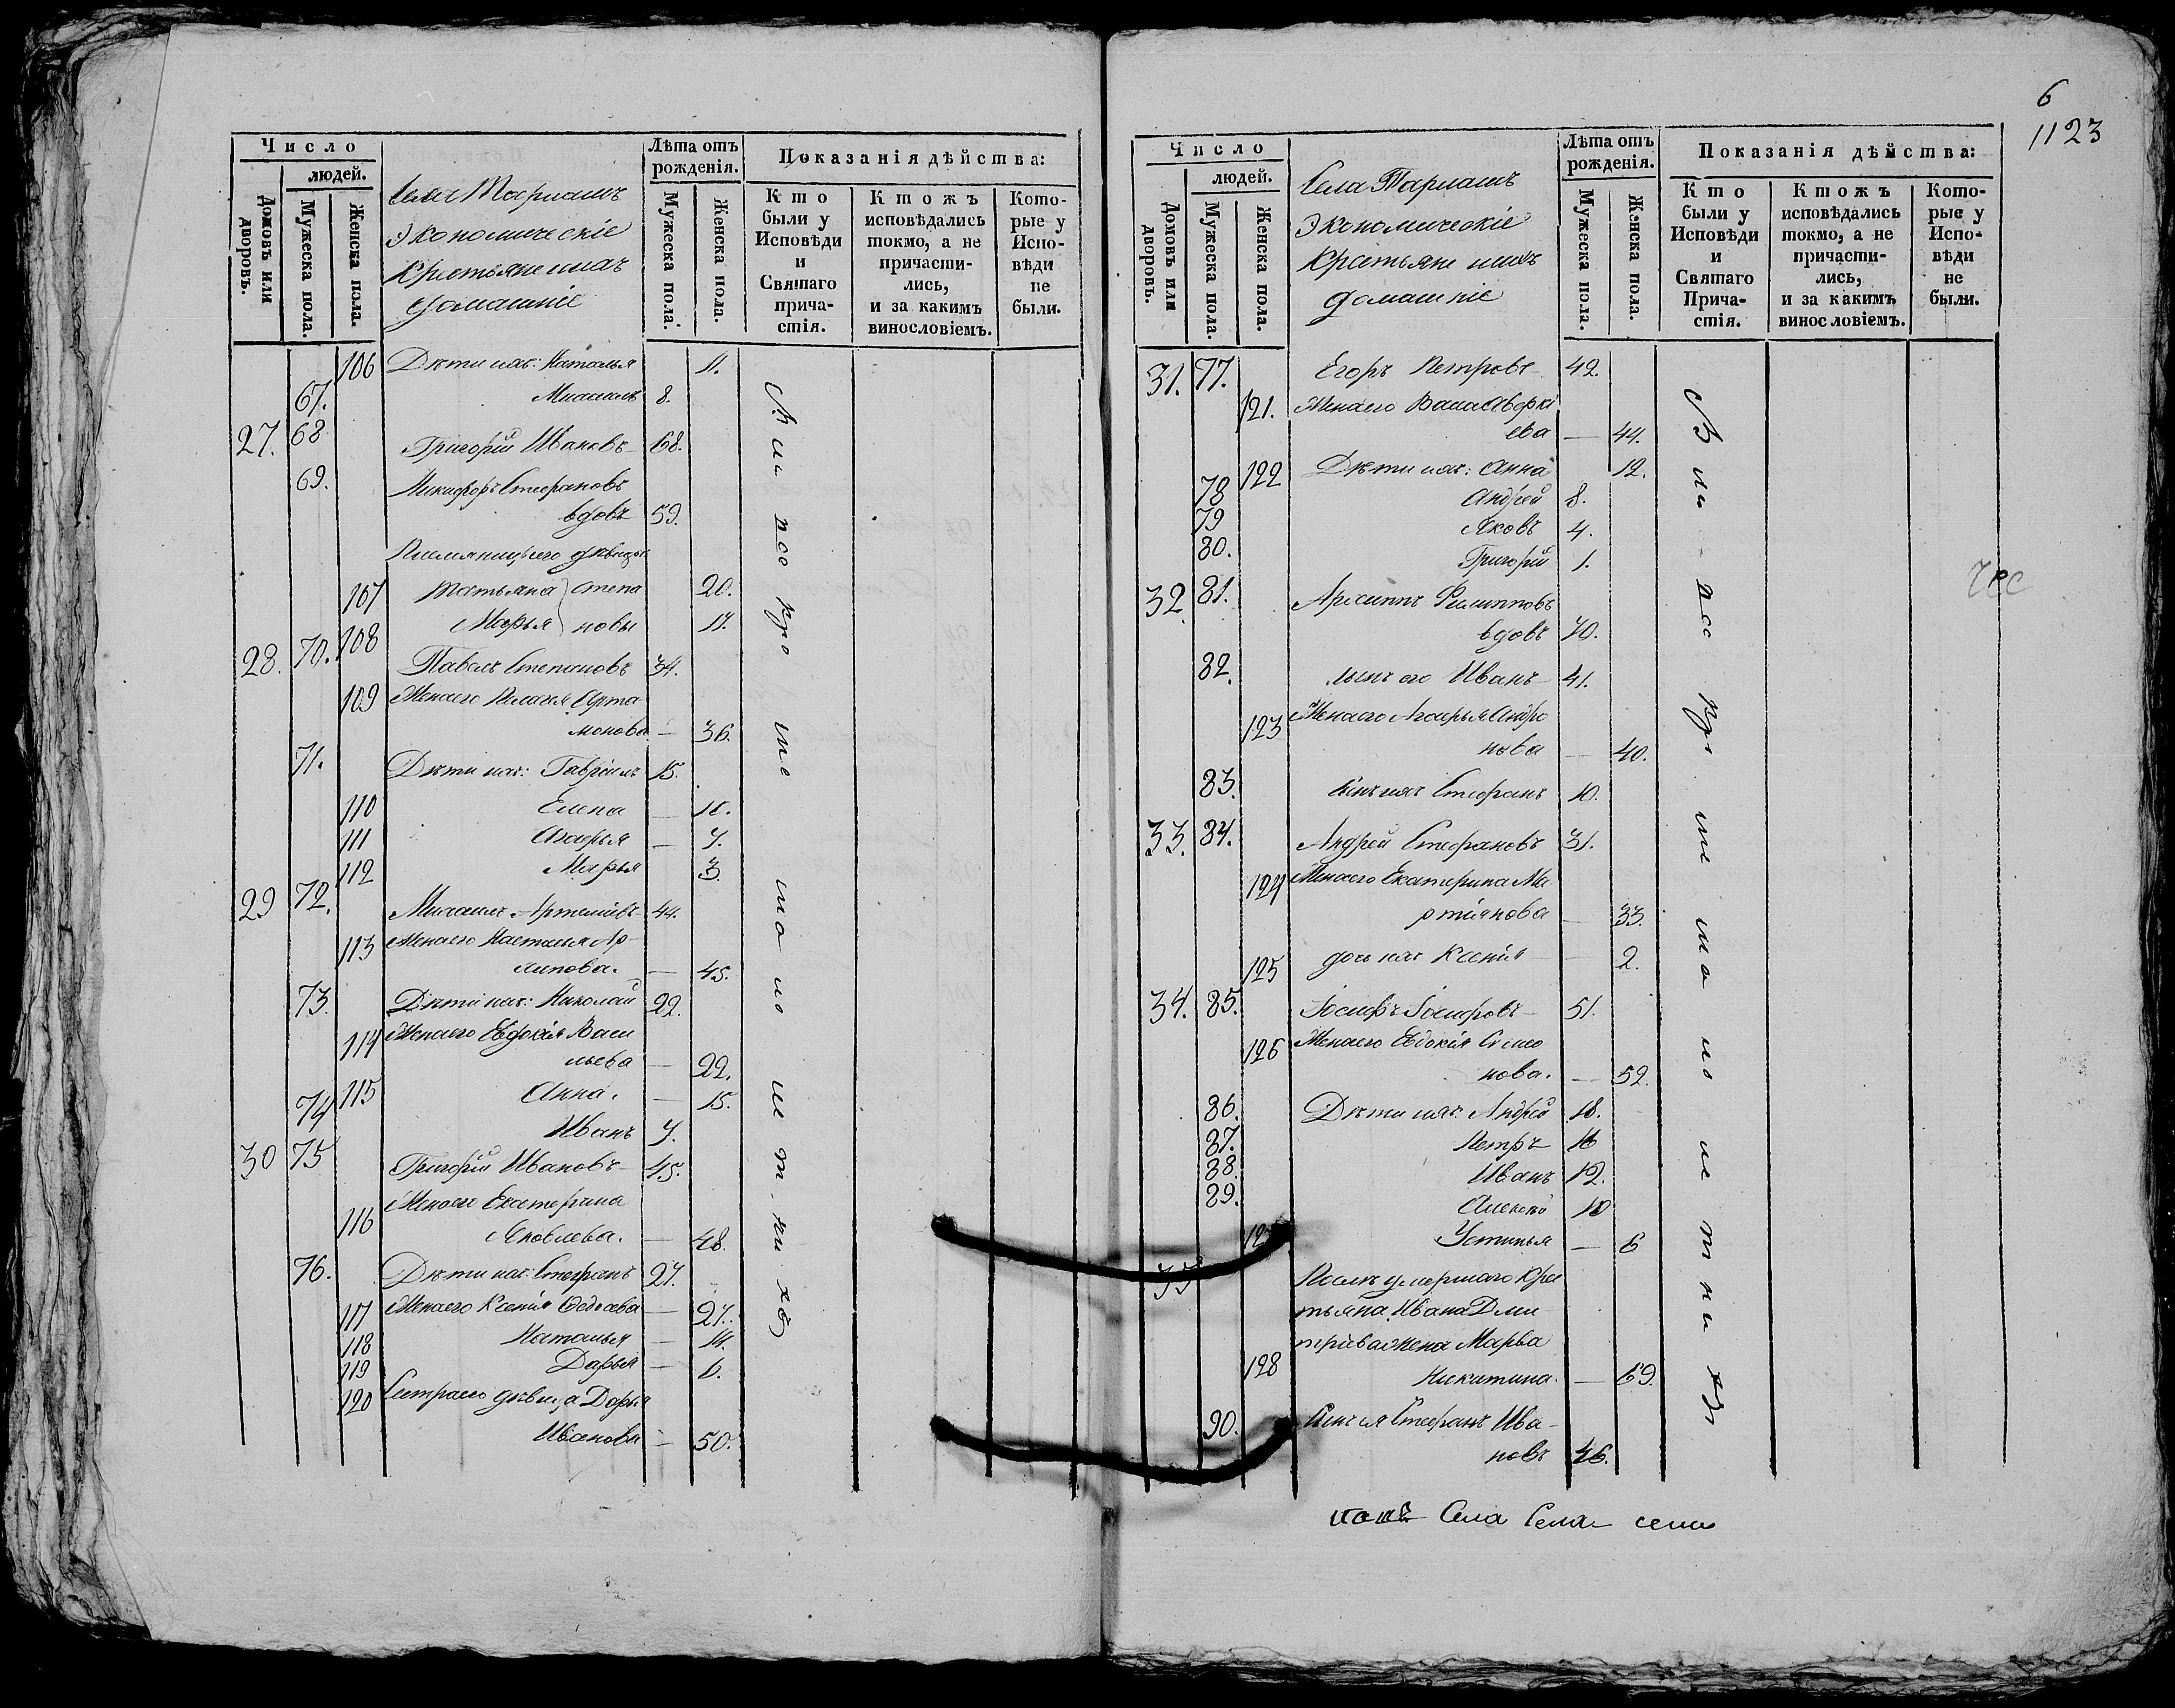 Число
людей.
Домовъ или дворовъ.
Мужеска пола.
Женска пола.
Села Тарлашъ
Экономическіе
Крестьяне ихъ
домашніе
Лѣта отъ рожденія.
Мужеска пола.
Женска пола.
Показанія дѣйства:
Кто были у Исповѣди и Святаго прича-стія.
Ктожъ исповѣдались токмо, а не причасти-лись, и за какимъ винословіемъ.
Кото-рые у Испо-вѣди не были.
106 Дѣти ихъ: Наталья 11.
67. Михаилъ 8.
27. 68 Григорій Ивановъ 68.
69. Никифоръ Стефановъ
вдовъ 59.
Племянницы его дѣвицы
107 Татьяна степа 20.
108 Марья новы 17.
28. 70. Павелъ Степановъ 34.
109 Жена его Пелагея Арта
монова — 36.
71. Дѣти ихъ: Гавріилъ 15.
110 Елена — 10.
111 Агафья — 7.
112 Марья 3.
29 72. Михаилъ Артемьевъ 44.
113 Жена его Настасья Ар-
хипова. — 45.
73. Дѣти ихъ: Николай 22.
114 Жена его Евдокія Васи
льева — 22.
115 Анна. — 15.
74 Иванъ 7.
30 75 Григорій Ивановъ 45.
Жена его Екатерина
116 Яковлева. — 48.
76. Дѣти ихъ: Стефанъ 27.
117 Жена его Ксенія Федосѣева — 27.
118 Наталья — 14.
119 Дарья — 6.
120 Сестра его дѣвица Дарья
Иванова — 50.
6
1123
Число
людей.
Домовъ или дворовъ.
Мужеска пола.
Женска пола.
Села Тарлашъ
Экономическіе
Крестьяне ихъ
домашніе
Лѣта отъ рожденія.
Мужеска пола.
Женска пола.
Показанія дѣйства:
Кто были у Исповѣди и Святаго Прича-стія.
Ктожъ исповѣдались токмо, а не причасти-лись, и за какимъ винословіемъ.
Кото-рые у Испо-вѣди не были.
31. 77. Егоръ Петровъ 42.
121. Жена его Васса Аверкі
ева — 44.
122 Дѣти ихъ: Анна 12.
78 Андрей 8.
79 Яковъ 4.
80. Григорій 1.
32. 81. Архиппъ Филипповъ
вдовъ 70.
82. сынъ его Иванъ 41.
123 Жена его Агафья Андро
нова — 40.
83. сынъ ихъ Стефанъ 10.
33. 84. Андрей Стефановъ 31.
124 Жена его Екатерина Ма
ртіянова — 33.
125 дочь ихъ Ксенія — 2.
34. 85. Іосифъ Іосифовъ 51.
126 Жена его Евдокія Симо
нова. — 52.
86. Дѣти ихъ: Андрей 18.
87. Петръ 16
88. Иванъ 12.
89. Алексѣй 10
Устинья — 6
35 Послѣ умершаго кре
стьянина Ивана Дми
тріева жена Марѳа
128 Никитина. — 69.
90. Сынъ ея Стефанъ Ива-
новъ 46.
Села Села